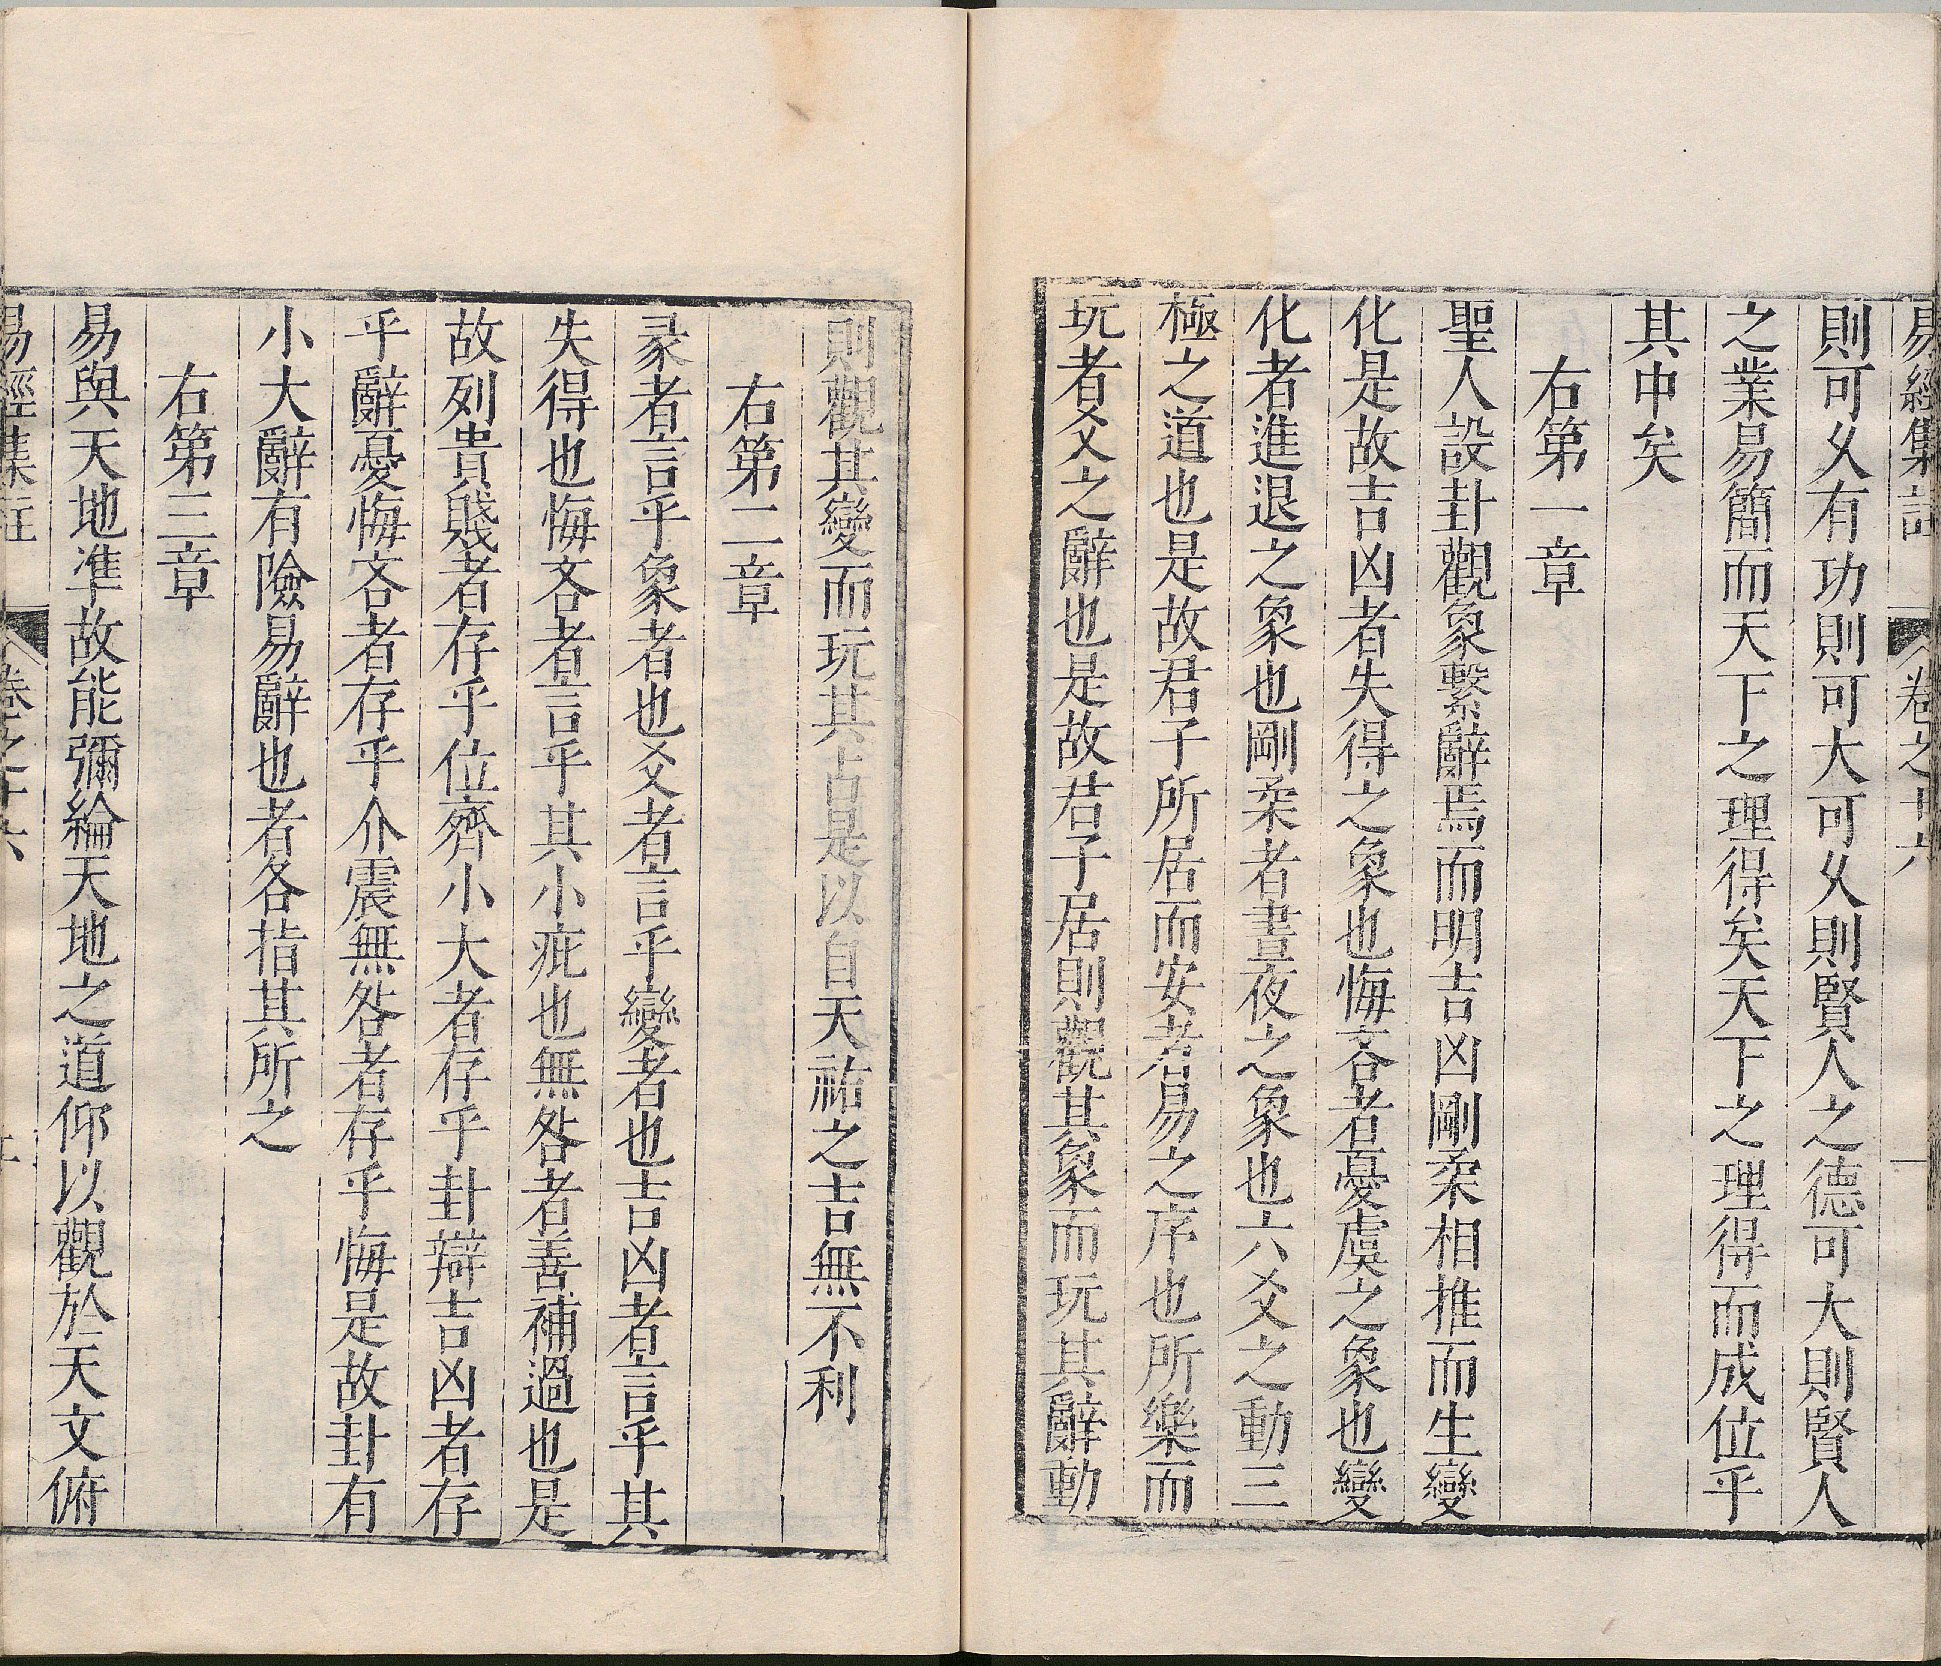 易經集註 卷之十六 一
則可久有功則可大可久則賢人之德可大則賢人
之業易簡而天下之理得矣天下之理得而成位乎
其中矣
右第一章
聖人設卦觀象繫辭焉而明吉凶剛柔相推而生變
化是故吉凶者失得之象也悔吝者憂虞之象也變
化者進退之象也剛柔者晝夜之象也六爻之動三
極之道也是故君子所居而安者易之序也所樂而
玩者爻之辭也是故君子居則觀其象而玩其辭動
則觀其變而玩其占是以自天祐之吉無不利
右第二章
彖者言乎象者也爻者言乎變者也吉凶者言乎其
失得也悔吝者言乎其小疵也無咎者善補過也是
故列貴賤者存乎位齊小大者存乎卦辯吉凶者存
乎辭憂悔吝者存乎介震無咎者存乎悔是故卦有
小大辭有險易辭也者各指其所之
右第三章
易與天地準故能彌綸天地之道仰以觀於天文俯
易經集註 卷之十六